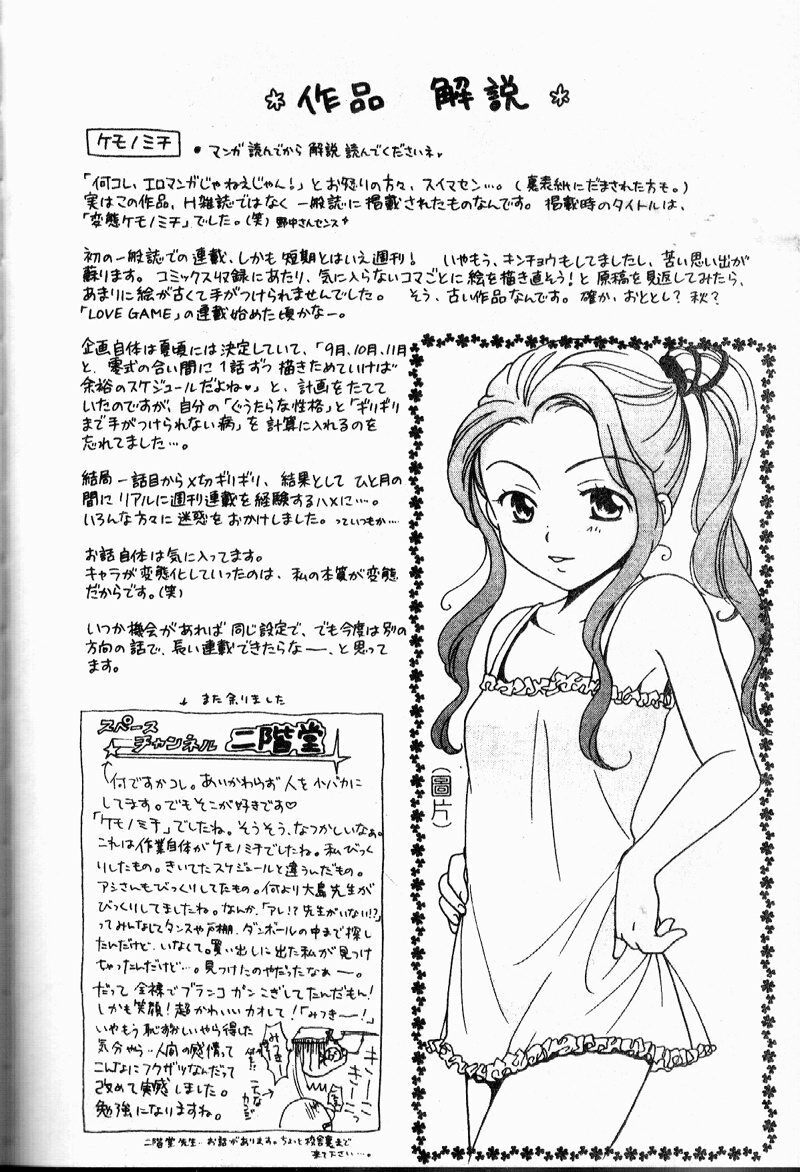 *作品 解説*
ケモノミチ
• マンガ読んでから解説読んでくださいネ。
「何コレ、エロマンガじゃねえじゃん!」とお怒りの方々、スイマセン…。(裏表紙にだまされた方も。)
実はこの作品、H雑誌ではなく一般誌に掲載されたものなんです。掲載時のタイトルは、
「変態ケモノミチ」でした。(笑) 野中さんセンス
初の一般誌での連載、しかも短期とはいえ週刊! いやもう、キンチョウもしてましたし、苦い思い出が
蘇ります。コミックス収録にあたり、気に入らないコマごとに絵を描き直そう!と原稿を見返してみたら、
あまりに絵が古くて手がつけられませんでした。 そう、古い作品なんです。確か、おととし?秋?
「LOVE GAME」の連載始めた頃かなー。
企画自体は夏頃には決定していて、「9月、10月、11月
と、零式の合い間に1話ずつ描きためていけば
余裕のスケジュールだよね♥」と、計画をたてて
いたのですが、自分の「ぐうたらな性格」と「ギリギリ
まで手がつけられない病」を計算に入れるのを
忘れてました…。
結局一話目から〆切ギリギリ、結果としてひと月の
間にリアルに週刊連載を経験するハメに…。
いろんな方々に迷惑をおかけしました。っていつもか…
お話自体は気に入ってます。
キャラが変態化していったのは、私の本質が変態
だからです。(笑)
いつか機会があれば同じ設定で、でも今度は別の
方向の話で、長い連載できたらなー、と思って
ます。
↓ また余りました
スペース
チャンネル 二階堂
何ですかコレ。あいかわらず人を小バカに
してます。でもそこが好きです♡
「ケモノミチ」でしたね。そうそう、なつかしいなぁ。
これは作業自体がケモノミチでしたね。私びっく
りしたもの。きいてたスケジュールと違うんだもの。
アシさんもびっくりしてたもの。何より大島先生が
びっくりしてましたね。なんか、「アレ!?先生がいない!?」
ってみんなしてタンスや戸棚、ダンボールの中まで探し
たんだけど、いなくて。買い出しに出た私が見つけ
ちゃったんだけど…。見つけたのやだったなぁー。
だって全裸でブランコガンこぎしてたんだもん!
しかも笑顔!超かわいいカオして!「みつきー!」
いやもう恥ずかしいやら得した
気分やら…人間の感情って
こんなにフクザツなんだって
改めて実感しました。
勉強になりますね。
みつき
こんな
カンジ
きーこ
きーこっ
二階堂先生…お話があります。ちょっと校舎裏まで
来て下さい…。
(圖片)